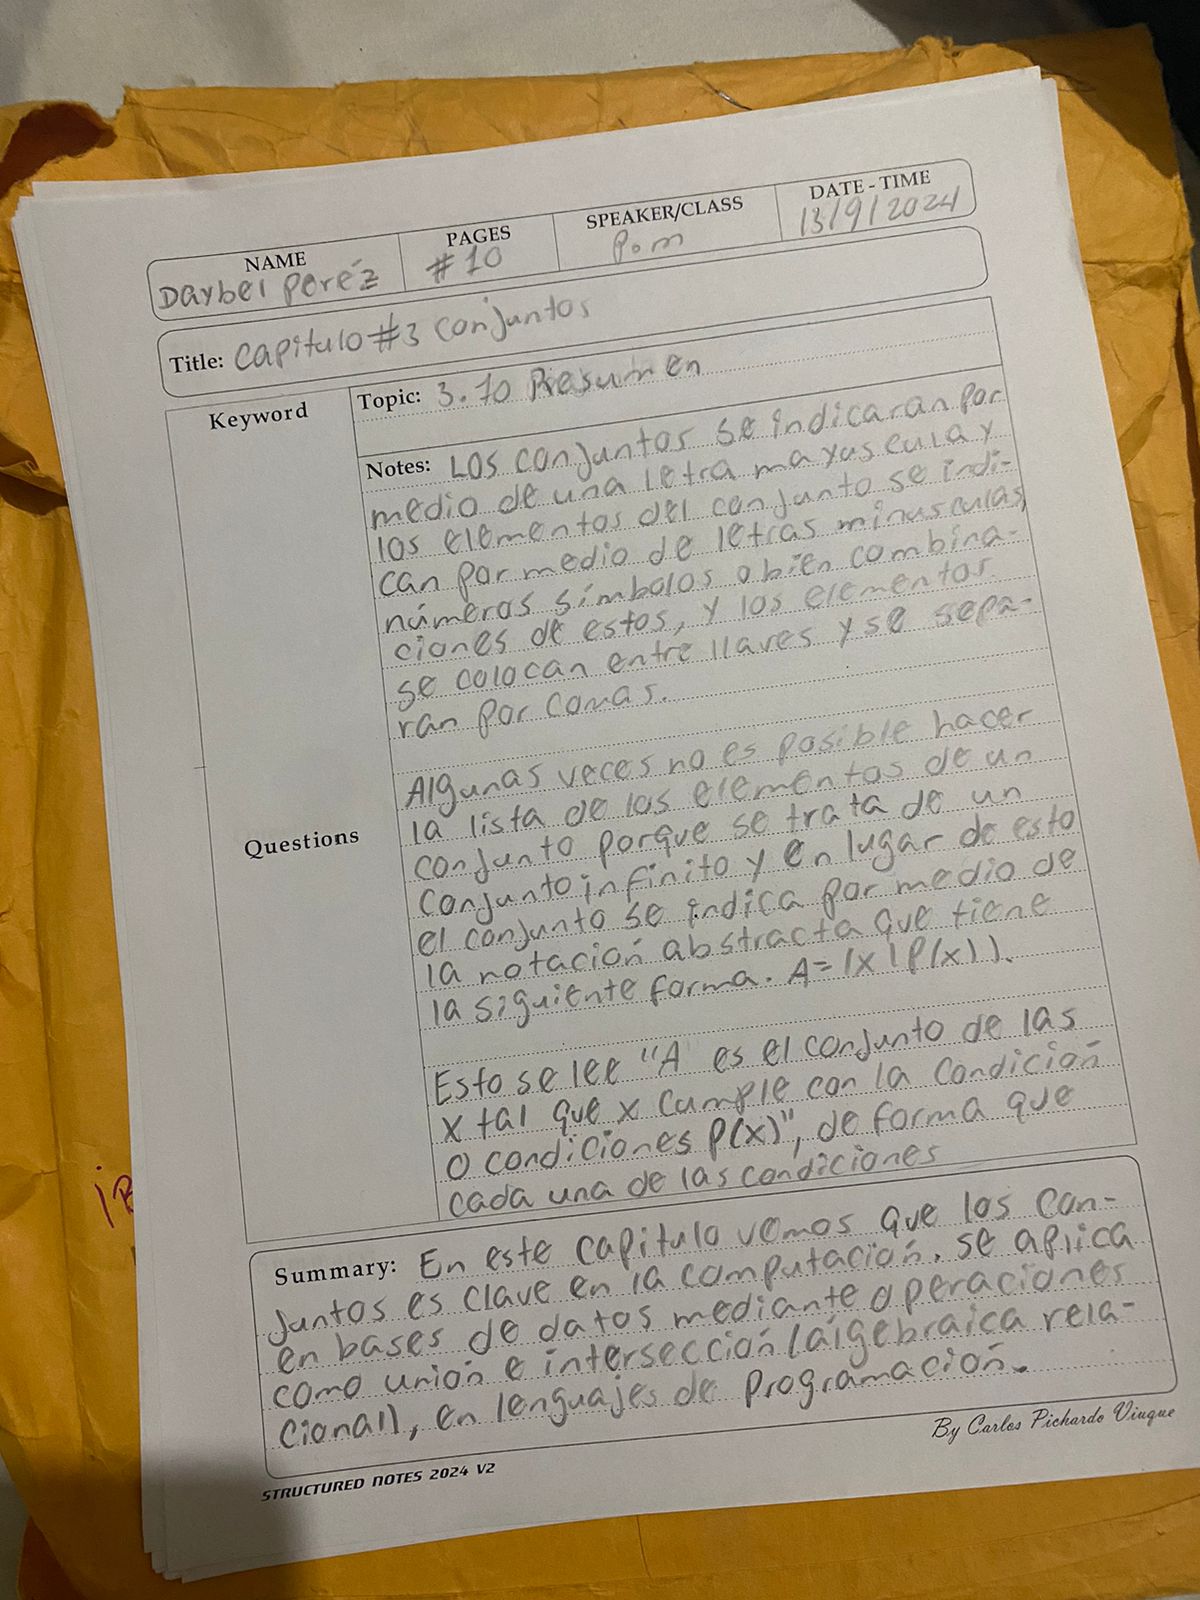 NAME
PAGES
SPEAKER/CLASS
DATE - TIME
Daybel Peréz
#10
P.m
13/9/2024
Title: Capitulo #3 Conjuntos
Keyword
Topic: 3.10 Resumen
Notes: Los conjuntos se indicaran por
medio de una letra mayuscula y
los elementos del conjunto se indi-
can por medio de letras minusculas,
números símbolos o bien combina-
ciones de estos, y los elementos
se colocan entre llaves y se sepa-
ran por comas.
Algunas veces no es posible hacer
la lista de los elementos de un
conjunto porque se trata de un
conjunto infinito y en lugar de esto
el conjunto se indica por medio de
la notación abstracta que tiene
la siguiente forma. A=(x|P(x)).
Questions
Esto se lee "A es el conjunto de las
x tal que x cumple con la condición
o condiciones P(x)", de forma que
cada una de las condiciones
Summary: En este capitulo vemos que los con-
juntos es clave en la computación. se aplica
en bases de datos mediante operaciones
como unión e intersección (álgebraica rela-
cional), en lenguajes de Programación.
STRUCTURED NOTES 2024 V2
By Carlos Pichardo Viuque